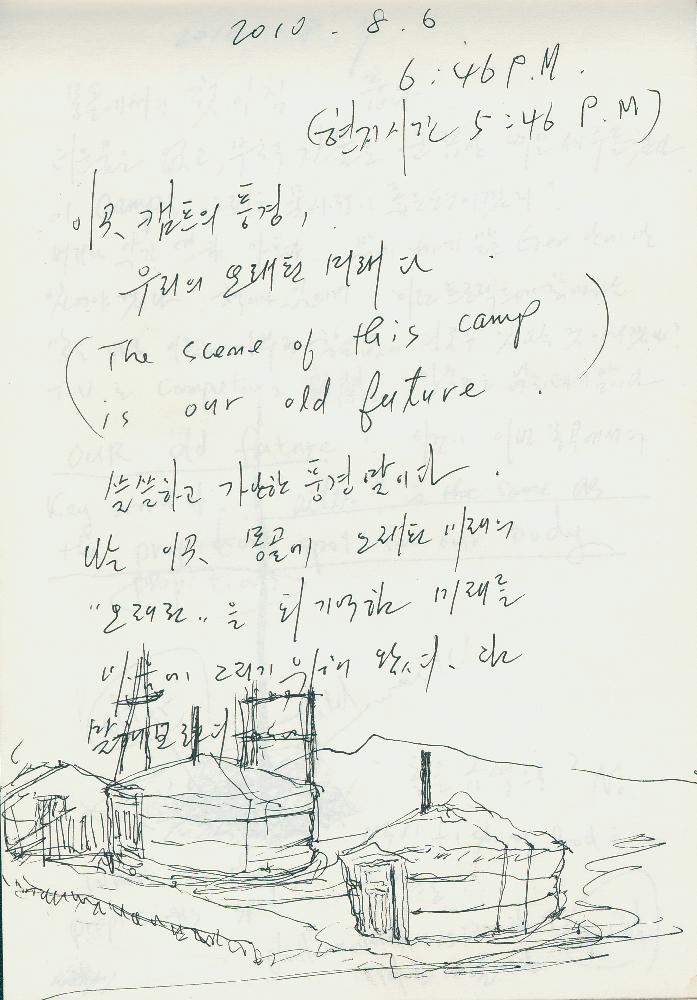 2010. 8. 6
6:46 P.M.
(현지시간 5:46 P.M)
이곳 캠프의 풍경,
우리의 오래된 미래다
(The scene of this camp
is our old future.)
쓸쓸하고 가난한 풍경 말이다.
나는 이곳 몽골에 오래된 미래의
"오래된"을 되 기억할 미래를
그리기 위해 왔으니. 라